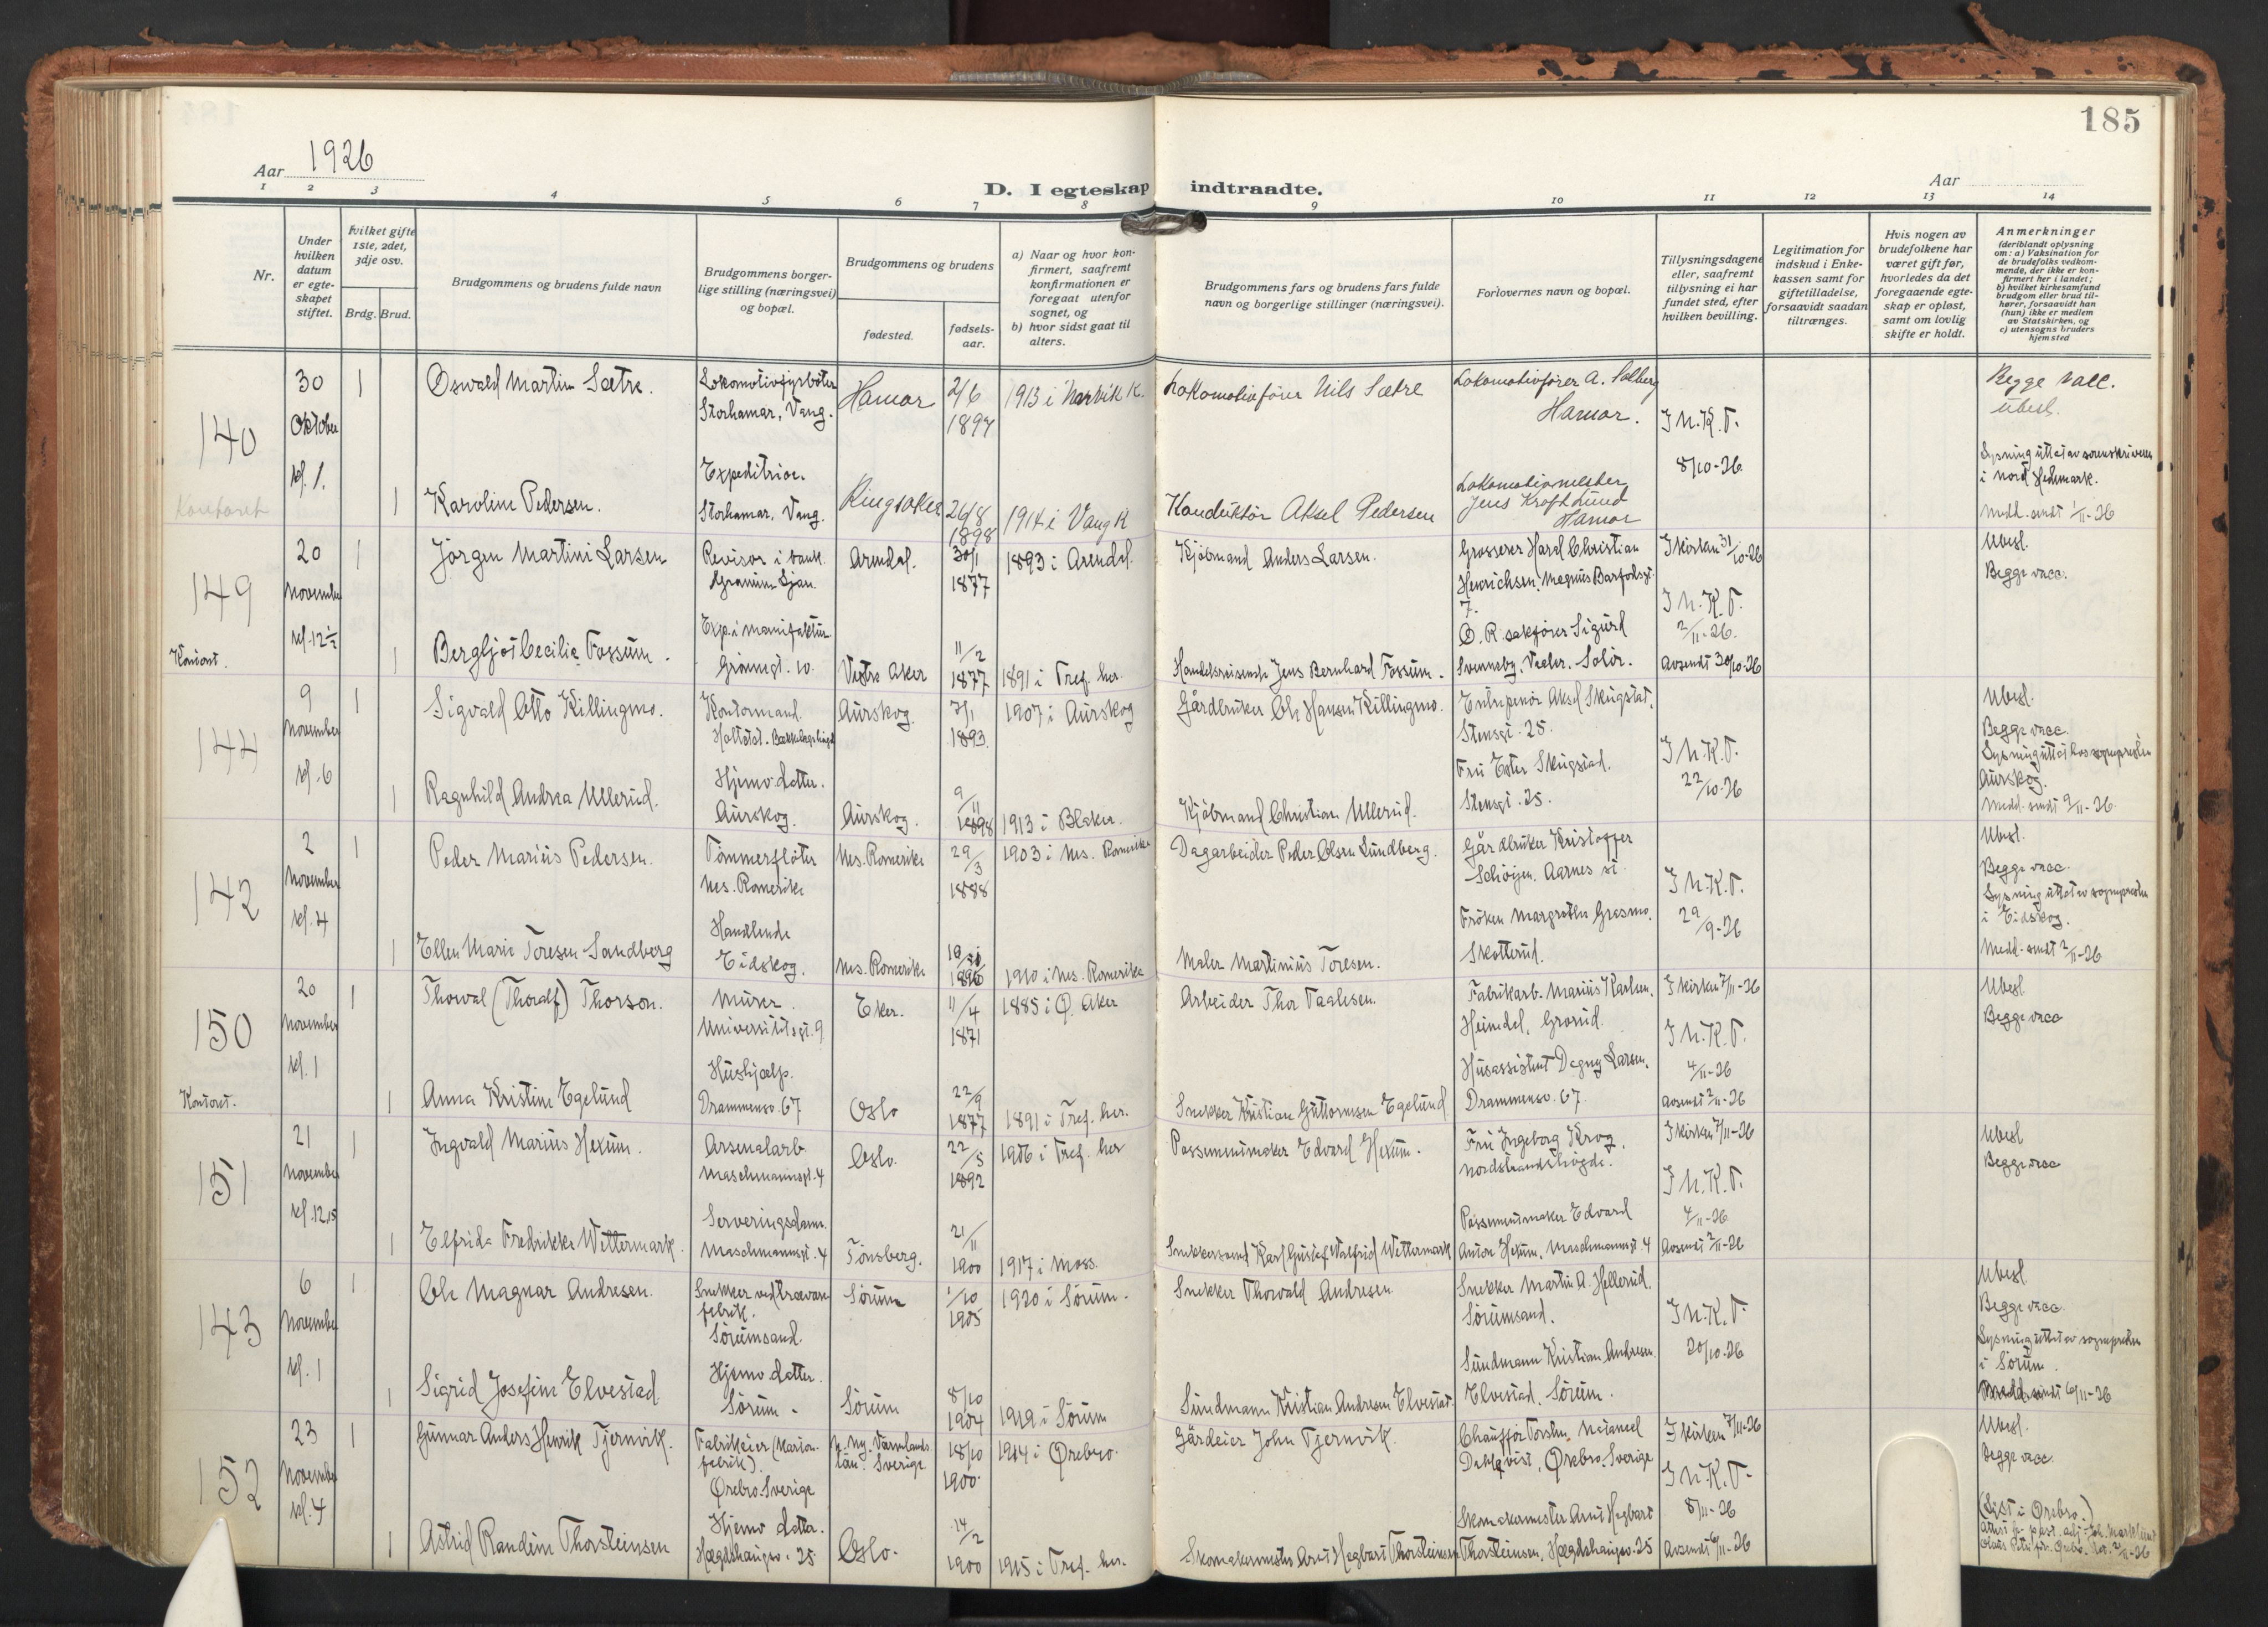 185
Aar 1926
D. I egteskap indtraadte.
Aar
1 2 3 4 5 6 7 8 9 10 11 12 13 14
Nr.
Under hvilken datum er egte-skapet stiftet.
hvilket gifte 1ste, 2det, 3dje osv.
Brdg. Brud.
Brudgommens og brudens fulde navn
Brudgommens borger-lige stilling (næringsvei) og bopæl.
Brudgommens og brudens
fødested.
fødsels-aar.
a) Naar og hvor kon-firmert, saafremt konfirmationen er foregaat utenfor sognet, og
b) hvor sidst gaat til alters.
Brudgommens fars og brudens fars fulde navn og borgerlige stillinger (næringsvei).
Forlovernes navn og bopæl.
Tillysningsdagene eller, saafremt tillysning ei har fundet sted, efter hvilken bevilling.
Legitimation for indskud i Enke-kassen samt for giftetilladelse, forsaavidt saadan tiltrænges.
Hvis nogen av brudefolkene har været gift før, hvorledes da det foregaaende egte-skap er opløst, samt om lovlig skifte er holdt.
Anmerkninger
(deriblandt oplysning om: a) Vaksination for de brudefolks vedkom-mende, der ikke er kon-firmert her i landet; b) hvilket kirkesamfund brudgom eller brud til-hører, forsaavidt han (hun) ikke er medlem av Statskirken, og c) utensogns bruders hjemsted
140
30 Oktober kl. 1.
Kontoret
1 Oswald Martin Sætre. Lokomotivfyrbøter Storhamar, Vang. Hamar 2/6 1897 1913 i Narvik K. Lokomotivfører Nils Sætre Lokomotivfører A. Solberg Hamar.
J N.K.T. 8/10-26
Begge vacc. Ubesl.
Lysning uttat av sorenskriveren i Nord Hedemark.
Medd. sendt 1/11-26
1 Karoline Pedersen. Expeditrice. Storhamar, Vang. Ringsaker 26/8 1898 1914 i Vang K Konduktör Aksel Pedersen Lokomotivmester Jens Kroft Lund Hamar
149
20 November kl. 12½
Kontoret.
1 Jörgen Martini Larsen Revisor i bank. Ljan. Arendal. 30/1 1877 1893 i Arendal. Kjöbmand Anders Larsen. Grosserer Haral Christian Henrichsen, Magnus Barfodsgt. 7.
J kirken 31/10-26
J N.K.T. 2/11-26.
Avsendt 30/10-26
Ubesl.
Begge vacc.
1 Bergljot Cecilie Fossum. Exp. i manufaktur. Grönnegt. 10. Vestre Aker 11/2 1877 1891 i Tref. her. Handelsreisende Jens Bernhard Fossum. O. R. sakförer Sigurd Svenneby, Vaaler, Solör.
144
9 November kl. 6
1 Sigvald Otto Killingmo. Kontormand. Aurskog. 7/1 1893. 1907 i Aurskog Gårdbruker Ole Hansen Killingmo. Entrepenör Aksel Skugstat, Stensgt. 25.
J N.K.T. 22/10-26
Ubesl.
Begge vacc.
Lysning uttat hos sognepresten Aurskog.
Medd. sendt 9/11-26.
1 Ragnhild Andrea Ullerud. Hjemv. datter. Aurskog. Aurskog. 9/11 1898 1913 i Blaker. Kjöbmand Christian Ullerud. Fru Ester Skugstad. Stensgt. 25.
142
2 November kl. 4
1 Peder Marius Pedersen. Tömmerflöter Nes. Romerike Nes. Romerike 29/3 1888 1903 i Nes. Romerike Dagarbeider Peder Olsen Lundberg. Gårdbruker Kristoffer Schöyen. Aarnes st.
J N.K.T. 29/9-26
Ubesl.
Begge vacc.
Lysning uttat av sognepresten i Eidskog.
Medd. sendt 2/11-26
1 Ellen Marie Toresen-Sandberg Handlende Eidskog. Nes. Romerike 1910 i Nes. Romerike Maler Martinius Toresen. Fröken Margrethe Grasmo, Skotterud.
150
20 November kl. 1
Kontoret.
1 Thorval (Thoralf) Thorson. Murer. Universitetsgt. 9 Eker. 11/4 1871 1885 i Ö. Aker Arbeider Thor Paalesen. Fabrikarb. Marius Karlsen, Heimdal, Grorud.
J kirken 7/11-26
J N.K.T. 4/11-26
Avsendt 2/11-26
Ubesl
Begge vacc
1 Anna Kristine Egelund Hushjælp. Drammensv. 67. Oslo 22/9 1877 1891 i Tref. her. Snekker Kristian Guttormsen Egelund Husassistent Dagny Larsen, Drammensv. 67.
151
21 November kl. 12,15
1 Ingvald Marius Hexum. Arsenalarb. Maschmannsgt. 4 Oslo. 22/5 1892 1906 i Tref. her Possementmaker Edvard Hexum. Fru Ingeborg Krog, Nordstrandshögda.
J kirken 7/11-26
J N.K.T. 4/11-26
Avsendt 2/11-26
Ubesl
Begge vacc
1 Elfrida Fredrikke Wettermark. Serveringsdame. Maschmannsgt. 4 Tönsberg. 21/11 1900 1917 i Moss. Snekkersvend Karl Gustaf Walfrid Wettermark Possementmaker Edvard Anton Hexum, Maschmannsgt. 4
143
6 November kl. 1
1 Ole Magnar Andresen. Snekker ved trævarefabrik. Sörumsand. Sörum 1/10 1905 1920 i Sörum. Snekker Thorvald Andresen. Snekker Martin A. Hellerud. Sörumsand.
J N.K.T. 20/10-26
Ubesl
Begge vacc.
Lysning uttat av sognepresten i Sörum.
Medd. sendt 6/11-26
1 Sigrid Josefine Elvestad Hjemv. datter. Sörum. Sörum 8/10 1904 1919 i Sörum Sundmann Kristian Andresen Elvestad. Sundmann Kristian Andresen Elvestad, Sörum.
152
23 November kl. 4
1 Gunnar Anders Henrik Tjernvik. Fabrikeier Örebro. Sverige N. Ny. Värmlands län. Sverige 18/10 1900. 1914 i Örebro. Gårdeier John Tjernvik. Chauffør Dahlqvist, Örebro. Sverige
J kirken 7/11-26
J N.K.T. 8/11-26
Avsendt 6/11-26
Ubesl.
Begge vacc.
(Lyst i Örebro.)
1 Astrid Randine Thorsteinsen Hjemv. datter. Hægdehaugsv. 25 Oslo. 14/2 1900 1915 i Tref. her. Skomakermester Arnt Hegbart Thorsteinsen Skomakermester Arnt Hegbart Thorsteinsen, Hægdehaugsv. 25